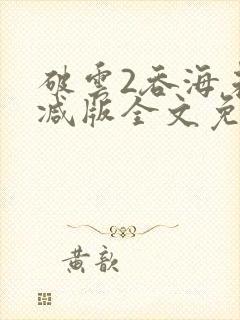 破雲2吞海
减版全文免
黄歆